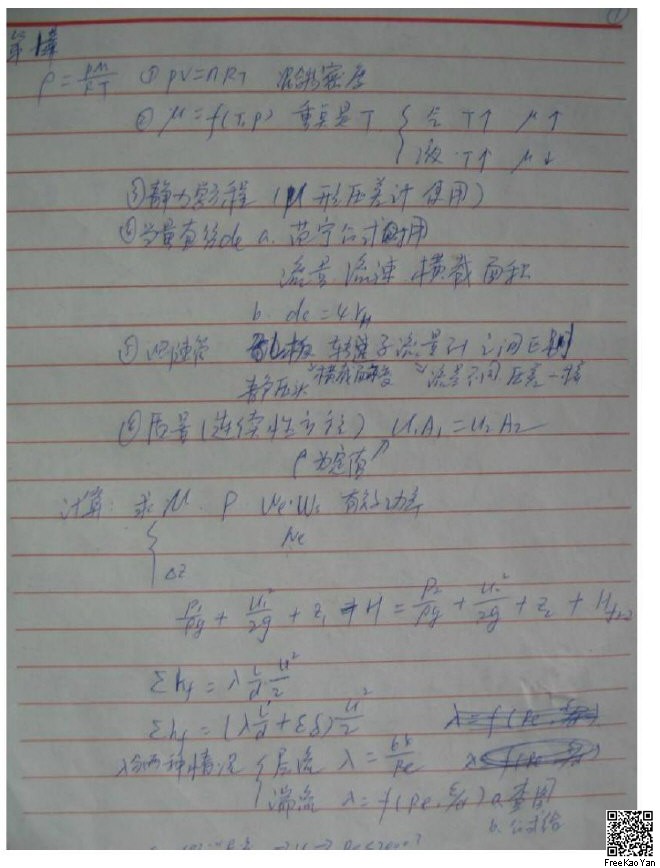 ①
第1章
ρ=PM/RT ① PV=nRT 混合密度
② μ=f(T,P) 重点是T { 气 T↑ μ↑
液 T↑ μ↓
③静力学方程 (U形压差计 使用)
④当量直径de a. 范宁公式时用
流量 流速 横截面积
b. de=4rH
⑤ 孔板 转子流量计 之间区别
静压头 流量不同 压差一样
⑥质量(连续性方程) U₁A₁=U₂A₂
ρ为定值↗
计算: 求 μ. P We·Ws 有效功率
Ne
Δz
P₁/ρg + U₁²/2g + z₁ + H = P₂/ρg + U₂²/2g + z₂ + Hf1-2
Σhf = λ L/d U²/2
Σhf = (λ L/d + Σξ) U²/2
λ分两种情况 { 层流 λ = 64/Re
湍流 λ=f(Re, ε/d) a.查图
b. 公式给
FreeKaoYan